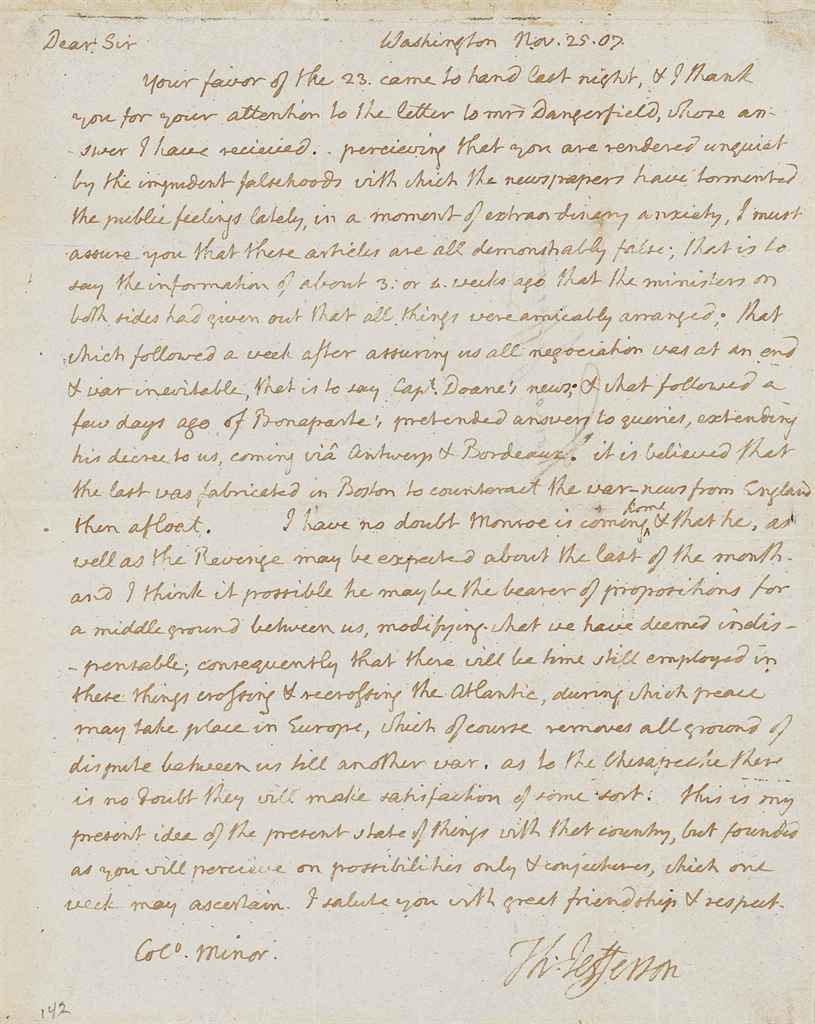 Dear Sir Washington Nov. 25. 07.
Your favor of the 23. came to hand last night, & I thank
you for your attention to the letter to mrs Dangerfield, whose an-
-swer I have recieved. . percieving that you are rendered unquiet
by the impudent falsehoods with which the newspapers have tormented
the public feelings lately, in a moment of extraordinary anxiety, I must
assure you that these articles are all demonstrably false; that is to
say the information of about 3. or 4. weeks ago that the ministers on
both sides had given out that all things were amicably arranged; that
which followed a week after assuring us all negociation was at an end
& war inevitable, that is to say Capt. Doane's news; & what followed a
few days ago of Bonaparte's pretended answers to queries, extending
his decree to us, coming viâ Antwerp & Bordeaux. it is believed that
the last was fabricated in Boston to counteract the war-news from England
then afloat. I have no doubt Monroe is coming home & that he, as
well as the Revenge may be expected about the last of the month.
and I think it possible he may be the bearer of propositions for
a middle ground between us, modifying what we have deemed indis-
-pensable; consequently that there will be time still employed in
these things crossing & recrossing the Atlantic, during which peace
may take place in Europe, which of course removes all ground of
dispute between us till another war. as to the Chesapeake there
is no doubt they will make satisfaction of some sort. this is my
present idea of the present state of things with that country, but founded
as you will percieve on possibilities only & conjectures, which one
week may ascertain. I salute you with great friendship & respect.
Colo. Minor. Th: Jefferson
142